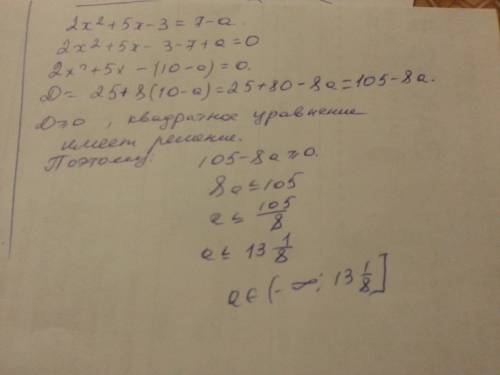 2x²+5x-3=7-a.
2x²+5x-3-7+a=0
2x²+5x-(10-a)=0.
D= 25+8(10-a)=25+80-8a=105-8a.
D≥0, квадратное уравнение
имеет решение.
Поэтому: 105-8a≥0.
8a≤105
a≤ 105/8
a≤ 13 1/8
a∈(-∞; 13 1/8]